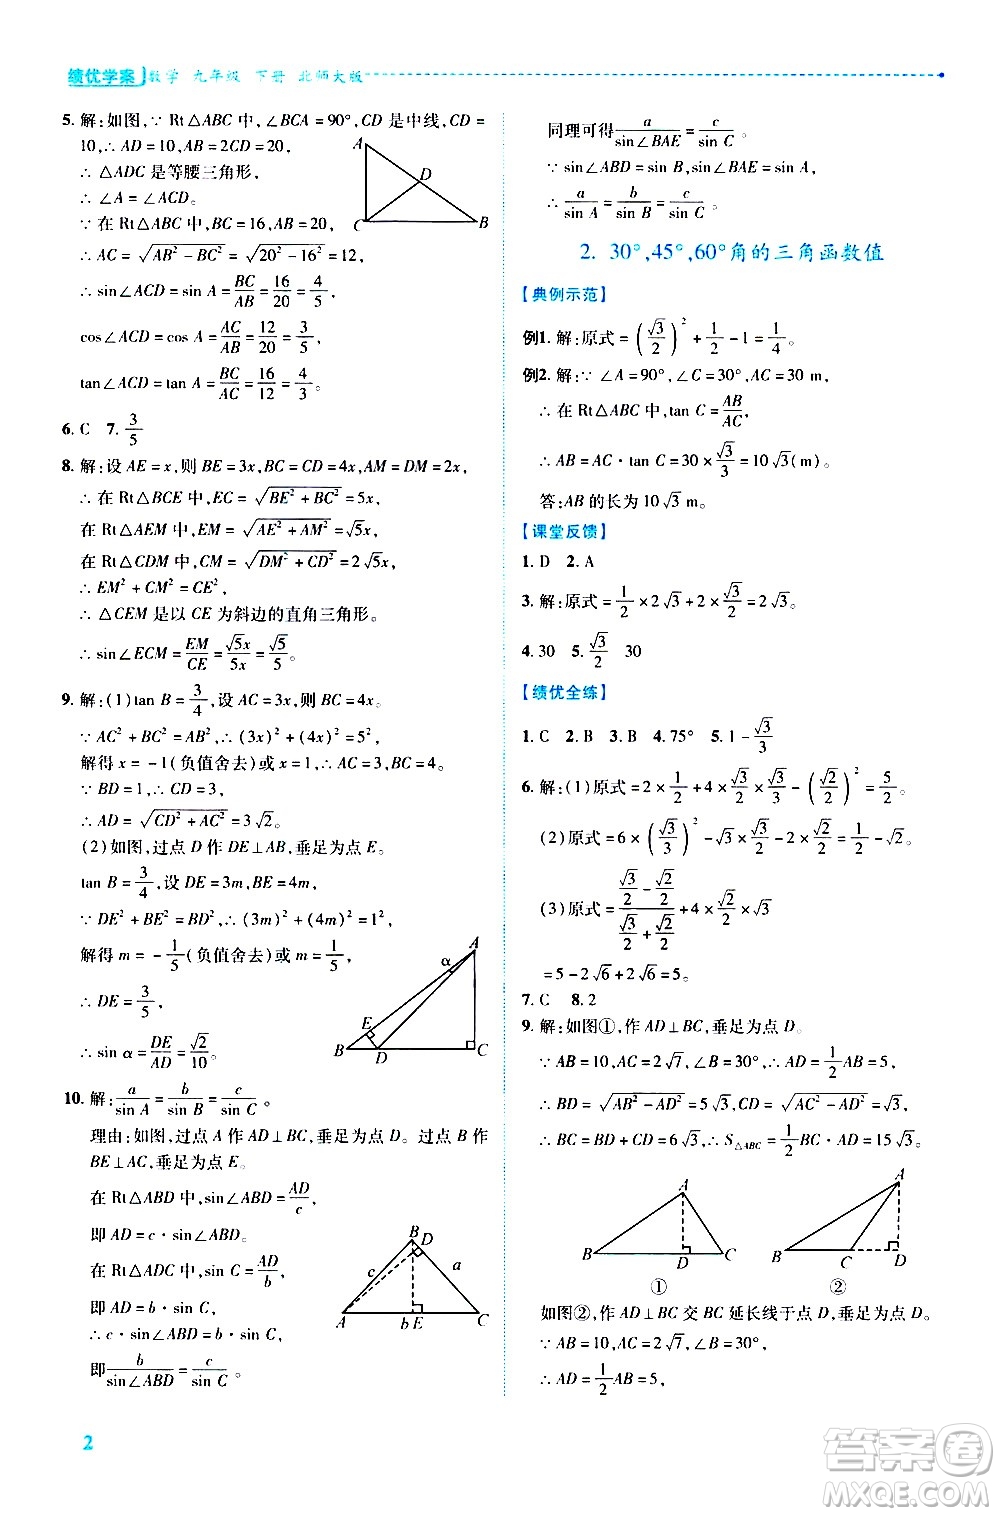 绩优学案 数学 九年级 下册 北师大版
5. 解:如图,∵ Rt△ABC 中,∠BCA = 90°,CD 是中线,CD =
10,∴ AD = 10,AB = 2CD = 20,
∴ △ADC 是等腰三角形,
∴ ∠A = ∠ACD。
∵ 在 Rt△ABC 中,BC = 16,AB = 20,
∴ AC = √(AB² − BC²) = √(20² − 16²) = 12,
∴ sin∠ACD = sin A = BC/AB = 16/20 = 4/5,
cos∠ACD = cos A = AC/AB = 12/20 = 3/5,
tan∠ACD = tan A = BC/AC = 16/12 = 4/3。
A D C B
6. C 7. 3/5
8. 解:设 AE = x,则 BE = 3x,BC = CD = 4x,AM = DM = 2x,
∴ 在 Rt△BCE 中,EC = √(BE² + BC²) = 5x,
在 Rt△AEM 中,EM = √(AE² + AM²) = √5x,
在 Rt△CDM 中,CM = √(DM² + CD²) = 2√5x,
∴ EM² + CM² = CE²,
∴ △CEM 是以 CE 为斜边的直角三角形,
∴ sin∠ECM = EM/CE = √5x/5x = √5/5。
9. 解:(1) tan B = 3/4,设 AC = 3x,则 BC = 4x。
∵ AC² + BC² = AB²,∴ (3x)² + (4x)² = 5²,
解得 x = − 1(负值舍去)或 x = 1,∴ AC = 3,BC = 4。
∵ BD = 1,∴ CD = 3,
∴ AD = √(CD² + AC²) = 3√2。
(2)如图,过点 D 作 DE⊥AB,垂足为点 E。
tan B = 3/4,设 DE = 3m,BE = 4m,
∵ DE² + BE² = BD²,∴ (3m)² + (4m)² = 1²,
解得 m = − 1/5(负值舍去)或 m = 1/5,
∴ DE = 3/5,
∴ sin α = DE/AD = √2/10。
A α E B D C
10. 解: a/sin A = b/sin B = c/sin C。
理由:如图,过点 A 作 AD⊥BC,垂足为点 D。过点 B 作
BE⊥AC,垂足为点 E。
在 Rt△ABD 中,sin∠ABD = AD/c,
即 AD = c·sin∠ABD。
在 Rt△ADC 中,sin C = AD/b,
即 AD = b·sin C,
∴ c·sin∠ABD = b·sin C,
即 b/sin∠ABD = c/sin C。
B D c a A b E C
2
同理可得 a/sin∠BAE = c/sin C。
∵ sin∠ABD = sin B,sin∠BAE = sin A,
∴ a/sin A = b/sin B = c/sin C。
2. 30°,45°,60°角的三角函数值
【典例示范】
例1. 解:原式 = (√3/2)² + 1/2 − 1 = 1/4。
例2. 解:∵ ∠A = 90°,∠C = 30°,AC = 30 m,
∴ 在 Rt△ABC 中,tan C = AB/AC,
∴ AB = AC·tan C = 30 × √3/3 = 10√3(m)。
答:AB 的长为 10√3 m。
【课堂反馈】
1. D 2. A
3. 解:原式 = 1/2 × 2√3 + 2 × √3/2 = 2√3。
4. 30 5. √3/2 30
【绩优全练】
1. C 2. B 3. B 4. 75° 5. 1 − √3/3
6. 解:(1)原式 = 2 × 1/2 + 4 × √3/2 × √3/3 − (√2/2)² = 5/2。
(2)原式 = 6 × (√3/3)² − √3 × √3/2 − 2 × √2/2 = 1/2 − √2。
(3)原式 = (√3/2 − √2/2)/(√3/2 + √2/2) + 4 × √2/2 × √3
= 5 − 2√6 + 2√6 = 5。
7. C 8. 2
9. 解:如图①,作 AD⊥BC,垂足为点 D。
∵ AB = 10,AC = 2√7,∠B = 30°,∴ AD = 1/2 AB = 5,
∴ BD = √(AB² − AD²) = 5√3,CD = √(AC² − AD²) = √3,
∴ BC = BD + CD = 6√3,∴ S△ABC = 1/2 BC·AD = 15√3。
A B D C
①
A B C D
②
如图②,作 AD⊥BC 交 BC 延长线于点 D,垂足为点 D,
∵ AB = 10,AC = 2√7,∠B = 30°,
∴ AD = 1/2 AB = 5,
答案圈
MXQE.COM